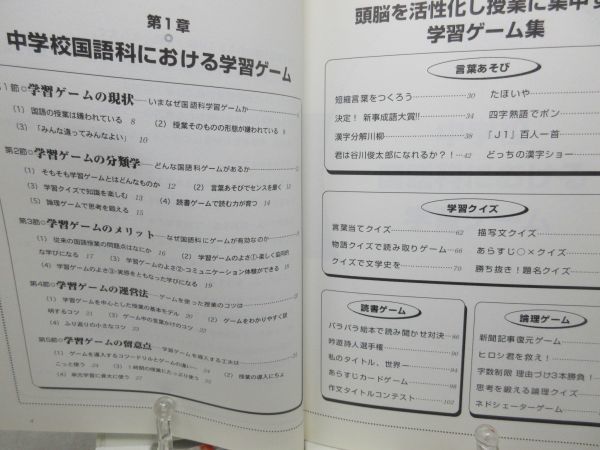 第1章
中学校国語科における学習ゲーム
第1節 学習ゲームの現状……いまなぜ国語科学習ゲームか
(1) 国語の授業は嫌われている 8 (2) 授業そのものの形態が嫌われている 8
(3) 「みんな違ってみんなよい」 10
第2節 学習ゲームの分類学……どんな国語科ゲームがあるか
(1) そもそも学習ゲームとはどんなものか 12 (2) 言葉あそびでセンスを磨く 13
(3) 学習クイズで知識を楽しむ 13 (4) 読書ゲームで読む力が育つ 14
(5) 論理ゲームで思考を鍛える 15
第3節 学習ゲームのメリット……なぜ国語科にゲームが有効なのか
(1) 従来の国語授業の問題点はなにか 16 (2) 学習ゲームのよさ①・楽しく協同的
な学びになる 17 (3) 学習ゲームのよさ②・コミュニケーション体験ができる 18
(4) 学習ゲームのよさ③・実感をともなった学びになる 19
第4節 学習ゲームの運営法……ゲームを使った授業のコツは
(1) 学習ゲームを中心とした授業の基本モデル 20 (2) ゲームをわかりやすく説
明するコツ 21 (3) ゲーム中の言葉かけのコツ 22
(4) ふり返りの小さなコツ 23
第5節 学習ゲームの留意点……学習ゲームを導入する工夫は
(1) ゲームを導入するコツ―ドリルとゲームの違い― (2) 授業の導入にちょ
こっと使う 24 (3) 1時間の授業にたっぷり使う
(4) 単元学習に長大に使う 27
4
頭脳を活性化し授業に集中す
学習ゲーム集
言葉あそび
短縮言葉をつくろう 30 たほいや
決定! 新事成語大賞!! 34 四字熟語でポン
漢字分解川柳 38 『J1』百人一首
君は谷川俊太郎になれるか?! 42 どっちの漢字ショー
学習クイズ
言葉当てクイズ 62 描写文クイズ
物語クイズで読み取りゲーム 66 あらすじ○×クイズ
クイズで文学史を 70 勝ち抜き!題名クイズ
読書ゲーム
バラバラ絵本で読み聞かせ対決 86
吟遊詩人選手権 90
私のタイトル、世界一 94
あらすじカードゲーム 98
作文タイトルコンテスト 102
論理ゲーム
新聞記事復元ゲーム
ヒロシ君を救え!
字数制限 理由づけ3本勝負!
思考を鍛える論理クイズ
ネドシェーターゲーム